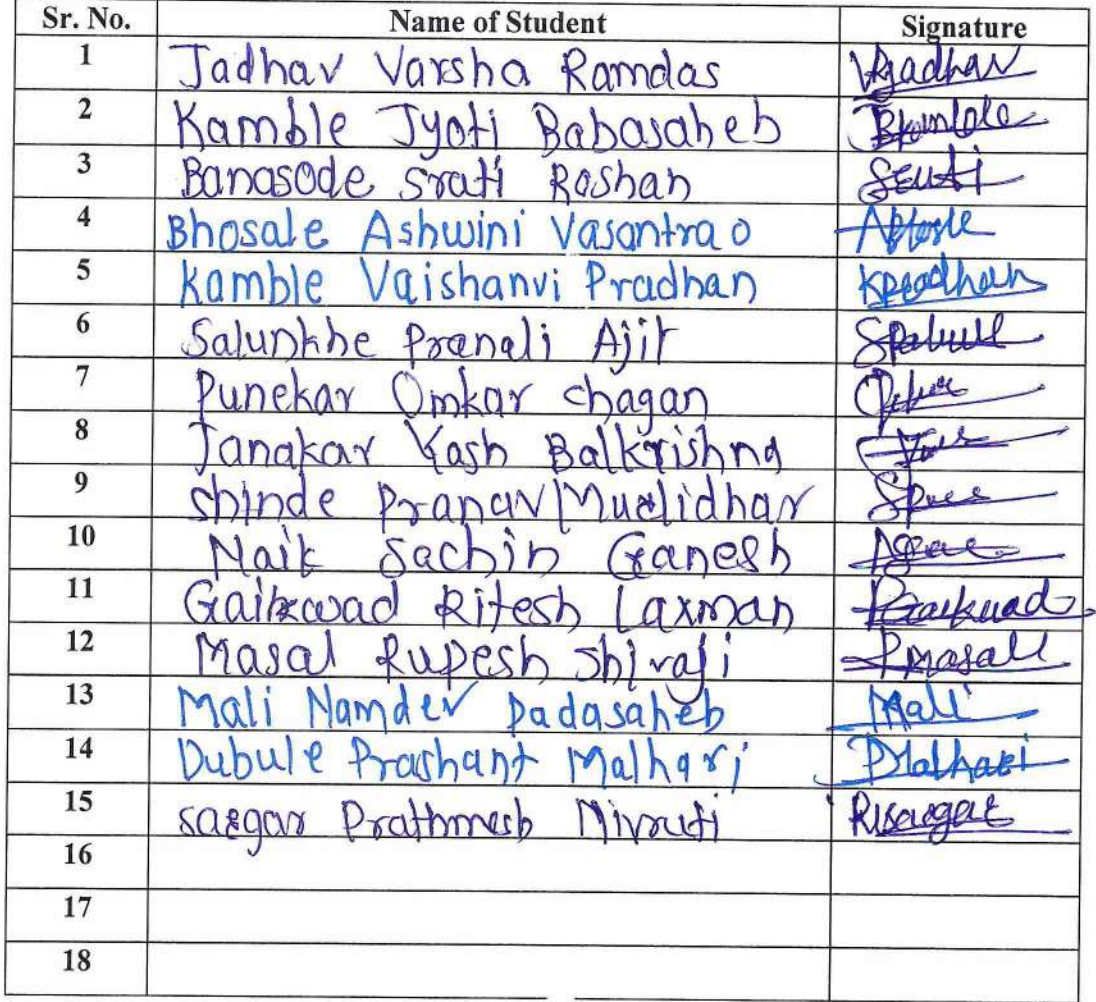 Sr. No. Name of Student Signature
1 Jadhav Varsha Ramdas
2 Kamble Jyoti Babasaheb
3 Banasode Srati Roshan
4 Bhosale Ashwini Vasantrao
5 Kamble Vaishanvi Pradhan Kpradhan
6 Salunkhe Pranali Ajit
7 Punekar Omkar chagan
8 Janakar Yash Balkrishna
9 Shinde Pranav Muralidhar
10 Naik Sachin Ganesh
11 Gaikwad Ritesh Laxman
12 Masal Rupesh Shivaji
13 Mali Namdev Dadasaheb Mali
14 Dubule Prashant Malhari
15 Sargar Prathmesh Nivruti
16
17
18